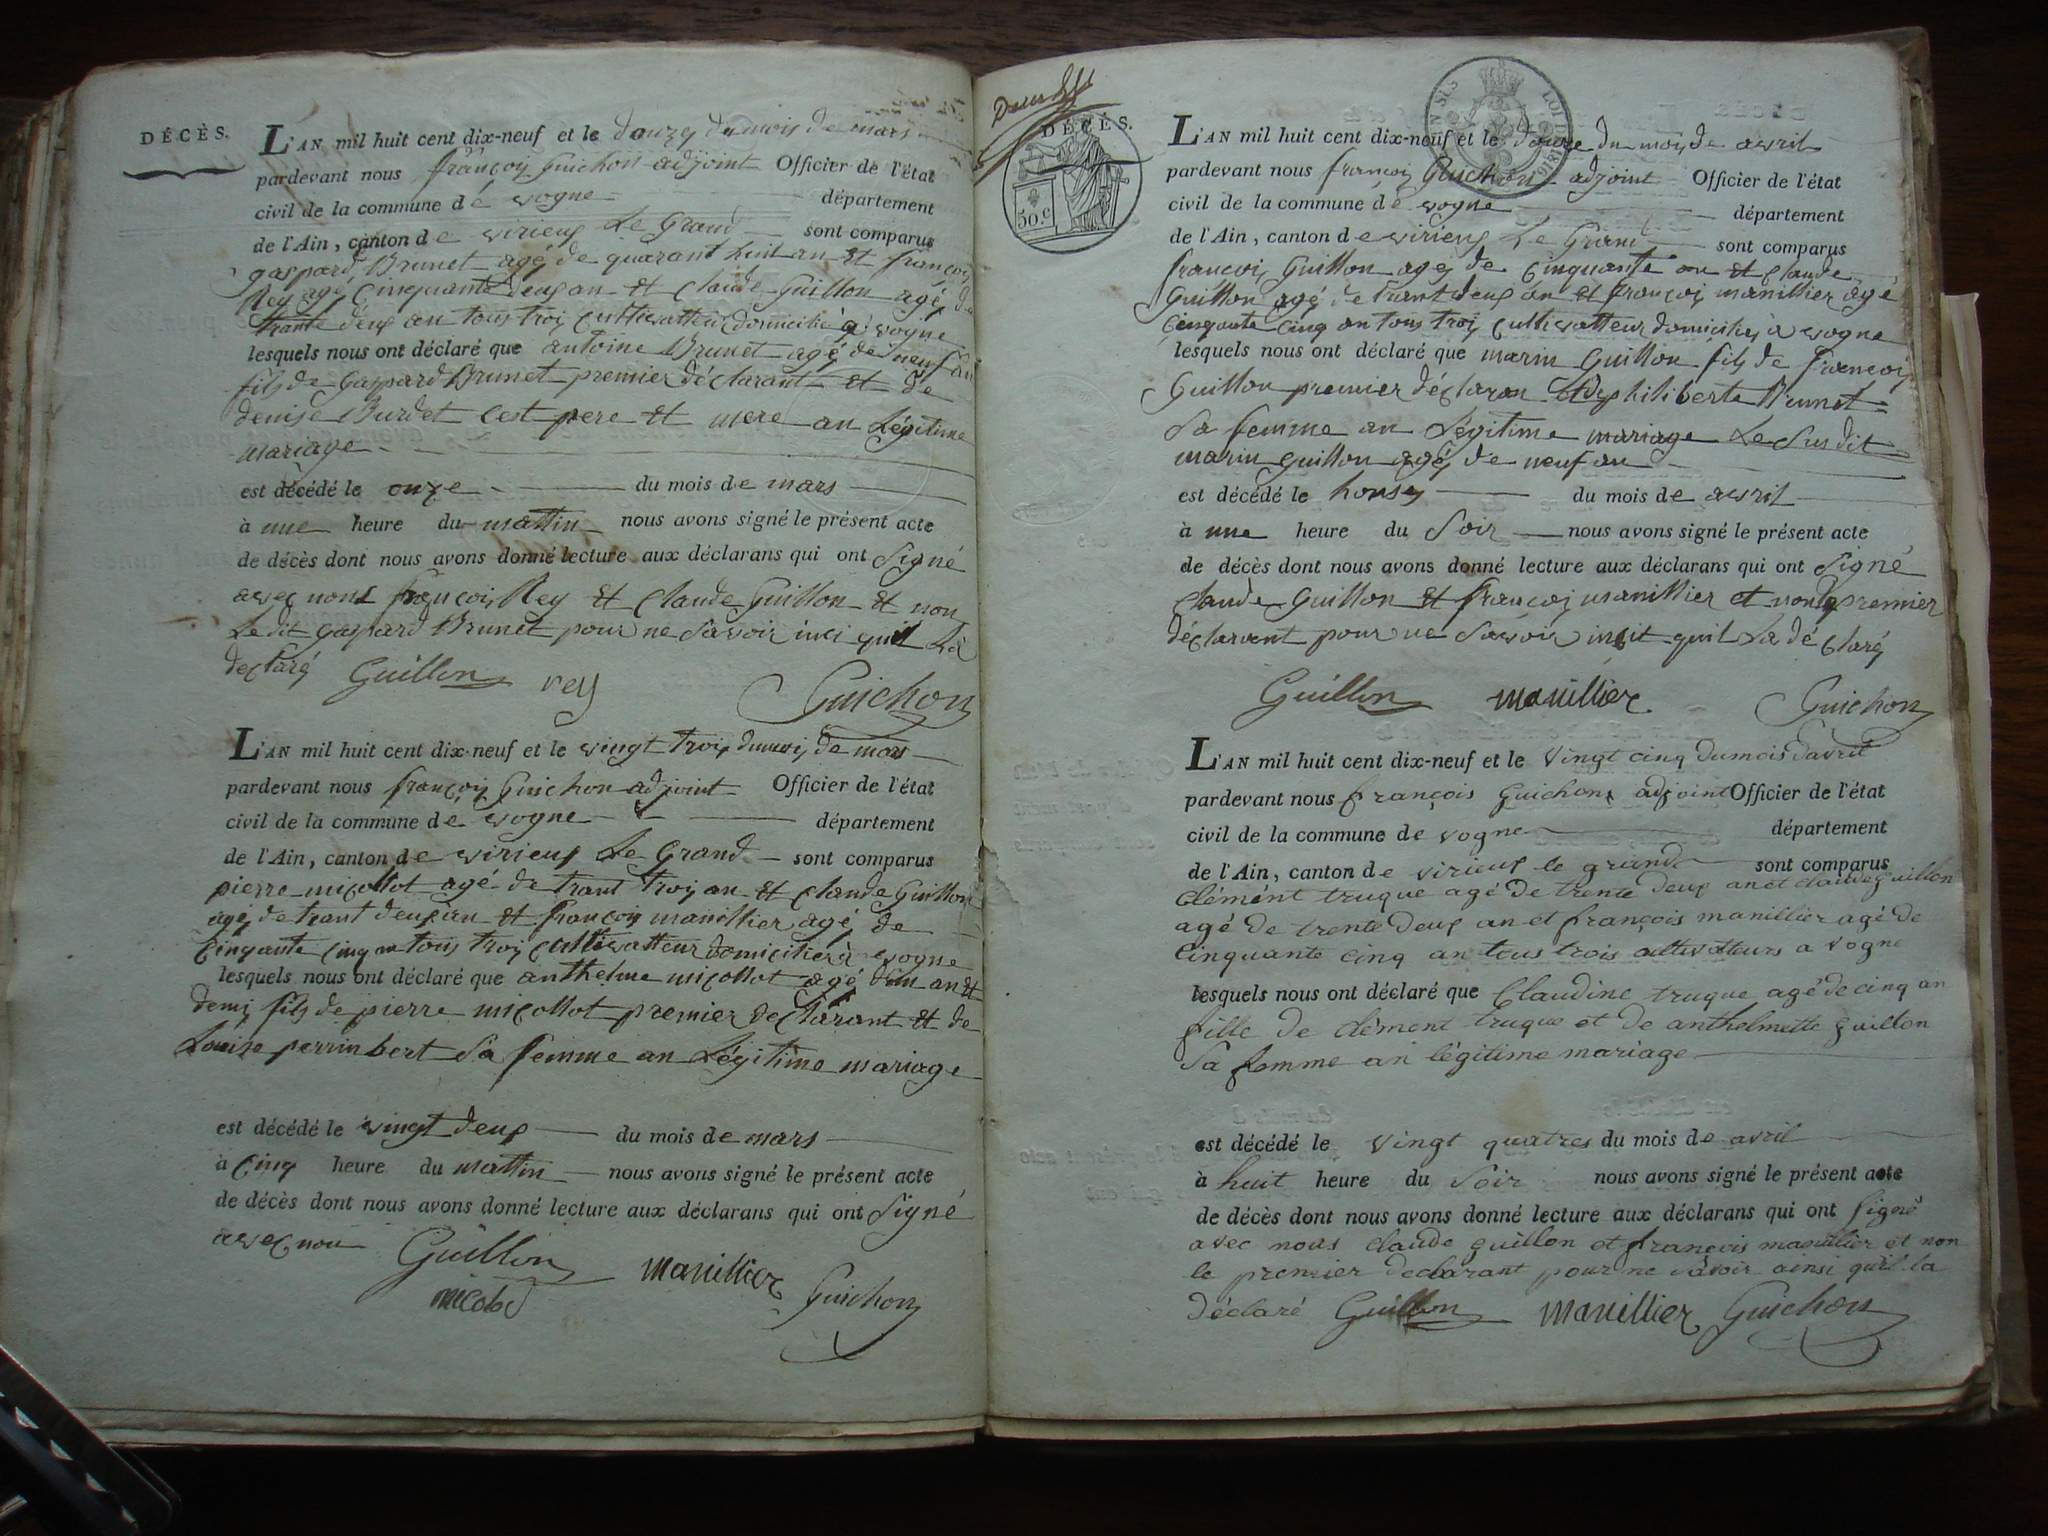 DÉCÈS.
L'AN mil huit cent dix-neuf et le douze du mois de mars
pardevant nous françois Guichon adjoint Officier de l'état
civil de la commune dé vogne département
de l'Ain, canton de virieux Le Grand sont comparus
gaspard Brunet agé de quarant huit an et françois
Rey agé cinquante deux an et Claude Guillon agé de
trante deux an tous troi cultivatteur domicilié a vogne
lesquels nous ont déclaré que antoine Brunet agé de neuf an
fils de Gaspard Brunet premier déclarant et de
denise Burdet cest pere et mere an Légitime
mariage
est décédé le onze du mois de mars
à une heure du mattin nous avons signé le présent acte
de décès dont nous avons donné lecture aux déclarans qui ont Signé
avec nous françois Rey et Claude Guillon et non
Le dit Gaspard Brunet pour ne Savoir inci quil La
declaré Guillon rey Guichon
L'AN mil huit cent dix-neuf et le vingt trois du mois de mars
pardevant nous françois Guichon adjoint Officier de l'état
civil de la commune de vogne département
de l'Ain, canton de virieux Le Grand sont comparus
pierre micollot agé de trant troi an et Claude Guillon
agé de trant deux an et françois manillier agé de
Cinqante cinq an tous troi cultivatteur domicilier à vogne
lesquels nous ont déclaré que anthelme micollot agé dun an et
demi fils de pierre micollot premier declarant et de
Louise perrinbert Sa femme an Légitime mariage
est décédé le vingt deux du mois de mars
à Cinq heure du mattin nous avons signé le présent acte
de décès dont nous avons donné lecture aux déclarans qui ont Signé
avec nou Guillon manillier Guichon
micolod
DÉCÈS.
50.c
L'AN mil huit cent dix-neuf et le douze du mois de avril
pardevant nous françois Guichon adjoint Officier de l'état
civil de la commune dé vogne département
de l'Ain, canton de virieux Le Grand sont comparus
francois Guillon agé de Cinquante an et Claude
Guillon agé de trant deux an et françois manillier agé
Cinqante Cinq an tous troi cultivatteur domicilié à vogne
lesquels nous ont déclaré que marin Guillon fils de françois
Guillon premier déclaran et de philiberte Brunet
Sa femme an Légitime mariage Le Sus dit
marin guillon agé de neuf an
est décédé le honse du mois de avril
à une heure du Soir nous avons signé le présent acte
de décès dont nous avons donné lecture aux déclarans qui ont Signé
Claude Guillon et françois manillier et non premier
déclarent pour ne Savoir insit quil La déclaré
Guillon manillier Guichon
L'AN mil huit cent dix-neuf et le vingt cinq du mois davril
pardevant nous françois Guichon adjoint Officier de l'état
civil de la commune de vogne département
de l'Ain, canton de virieux le grand sont comparus
Clément truque agé de trente deux an et claude guillon
agé de trente deux an et françois manillier agé de
Cinquante cinq an tous trois cultivatteurs a vogne
lesquels nous ont déclaré que Claudine truque agé de cinq an
fille de clément truque et de anthelmette guillon
Sa femme an légitime mariage
est décédé le vingt quatres du mois de avril
à huit heure du Soir nous avons signé le présent acte
de décès dont nous avons donné lecture aux déclarans qui ont Signé
avec nous claude guillon et françois manillier et non
le premier declarant pour ne savoir ainsi qu'il la
déclaré Guillon manillier Guichon